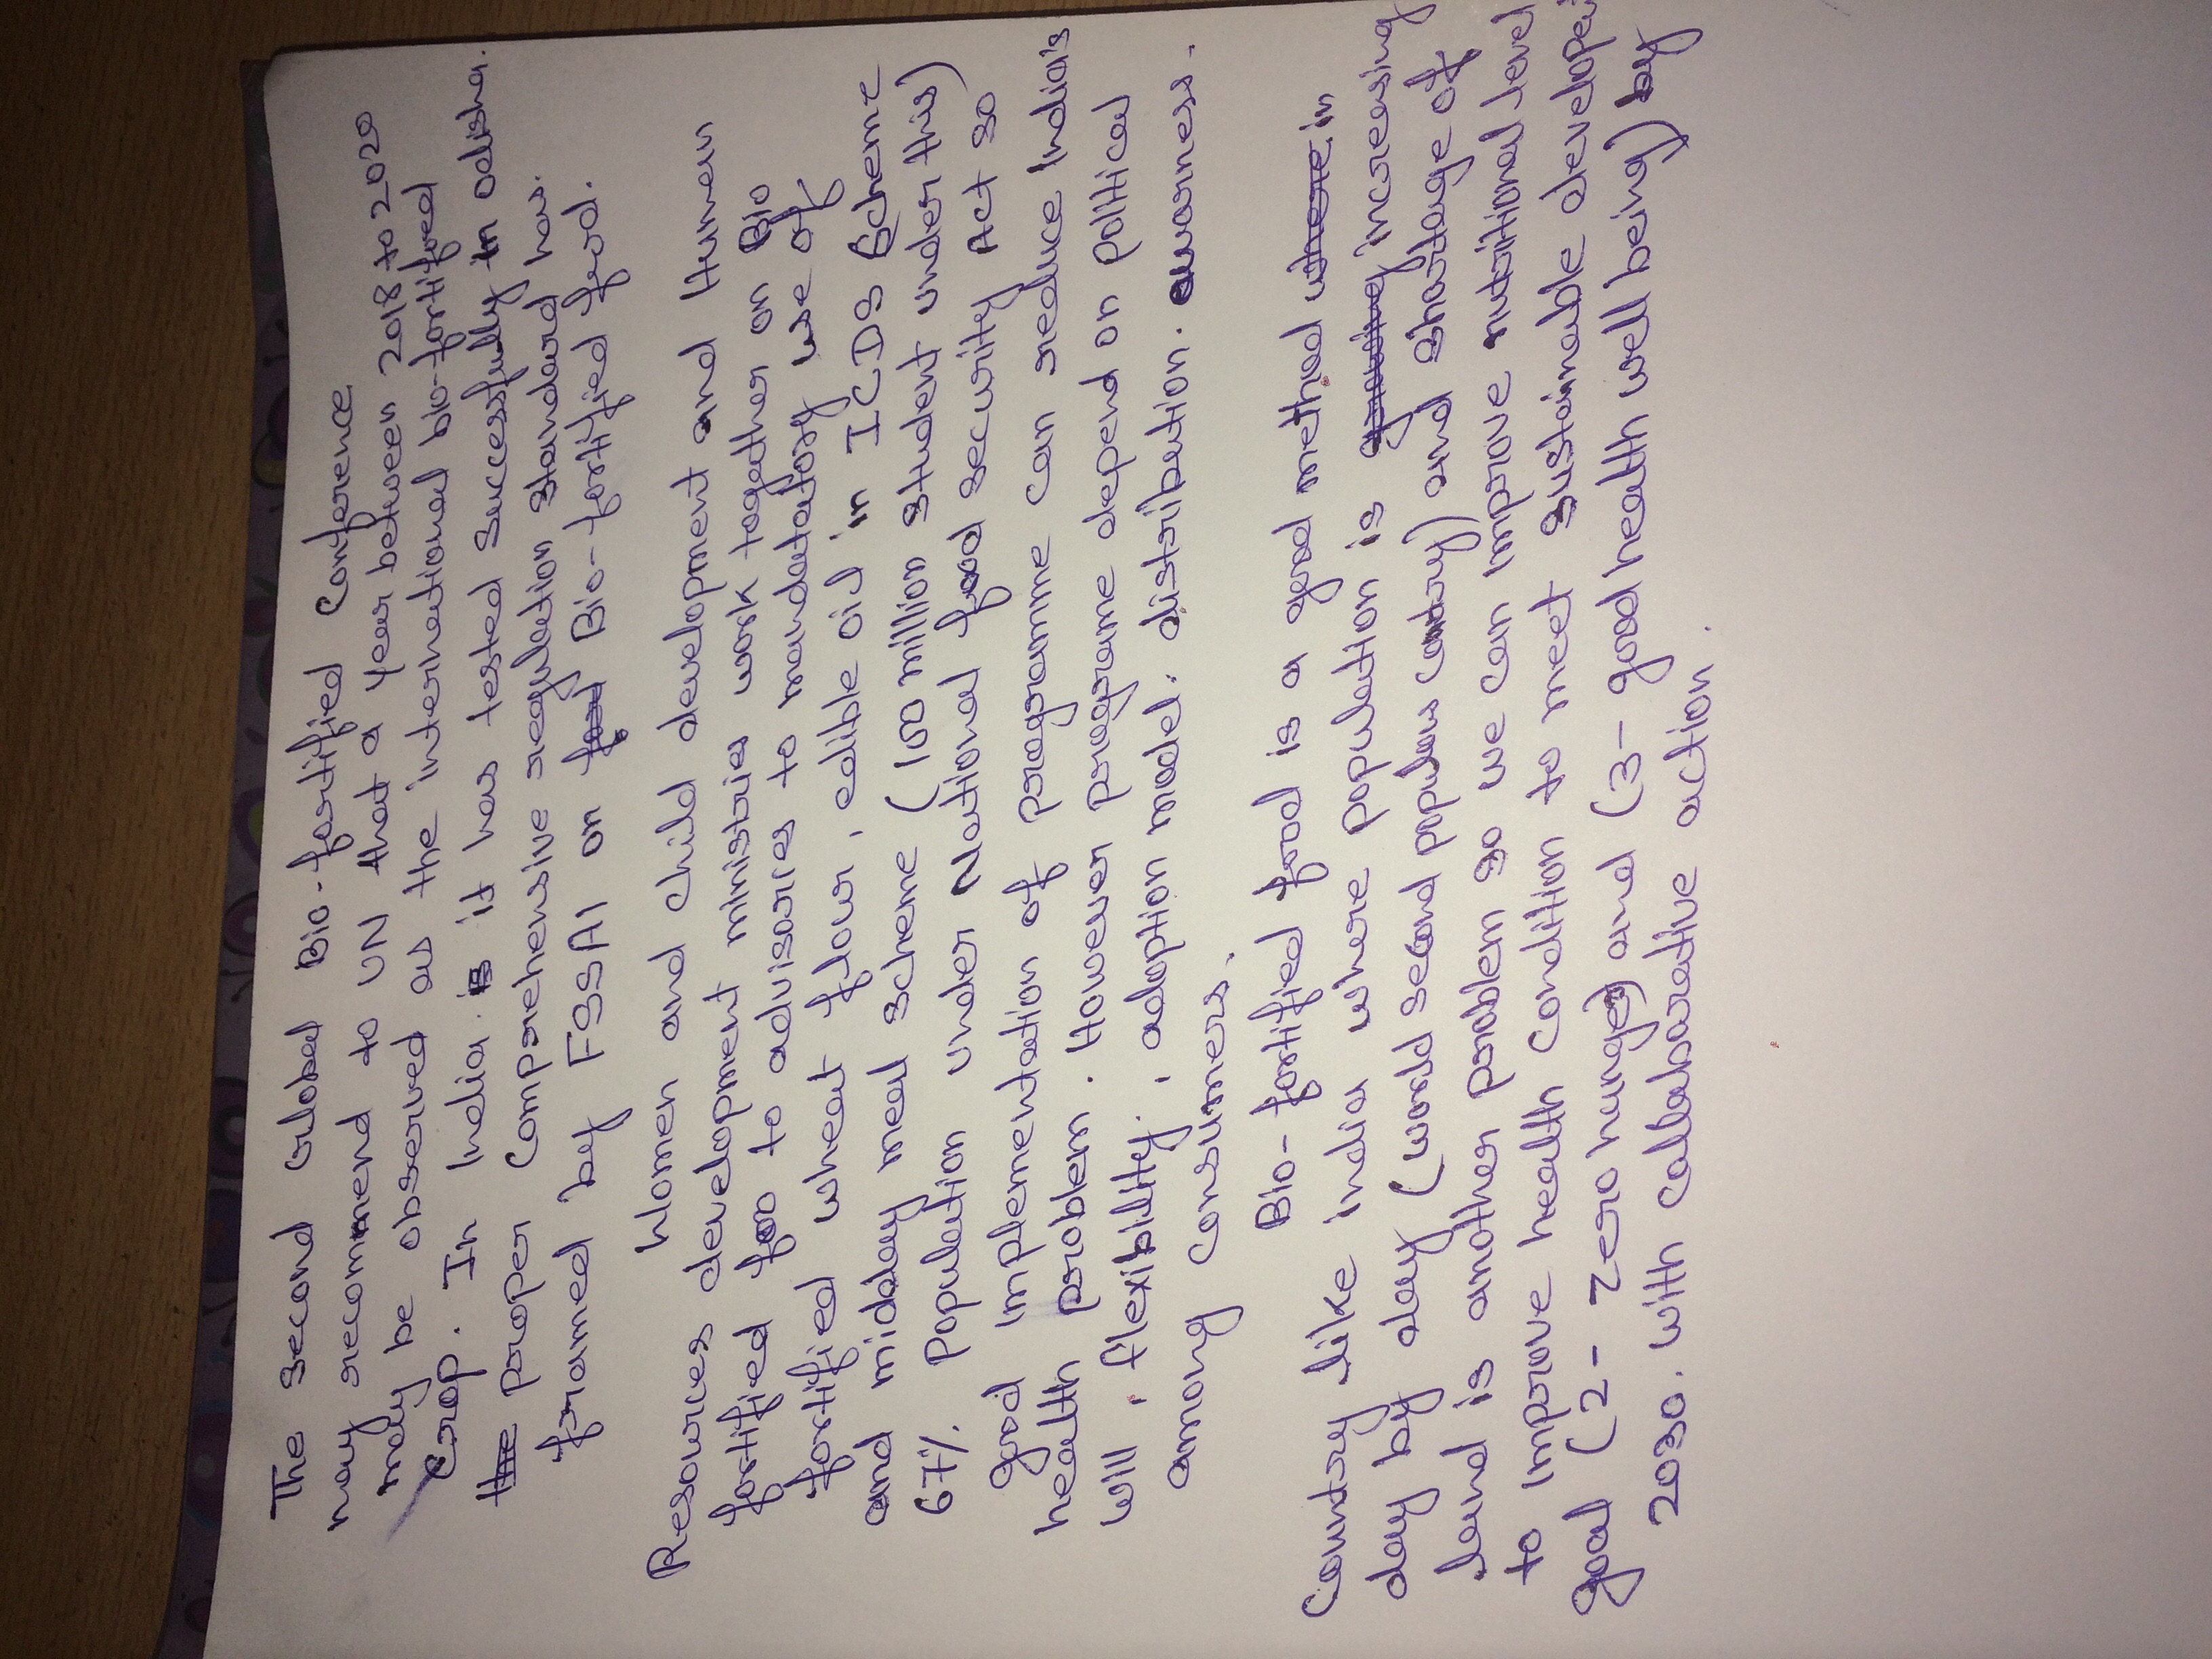 The second Global Bio-fortified Conference
may recommend to UN that a year between 2018 to 2020
may be observed as the international bio-fortified
crop. In India. it has tested successfully in odisha.
proper Comprehensive regulation standard has.
framed by FSSAI on Bio-fortified food.
Women and child development and Human
Resources development ministries work togather on Bio
fortified foo to advisories to mandatatory use of
fortified wheat flour, edible oil in ICDS Scheme
and midday meal scheme (100 million student under this)
67% population under National food security Act so
good implementation of programme can reduce India's
health problem. However programe depend on political
will, flexibility, adoption model, distribution. awarness.
among consumers.
Bio-fortified food is a good method in
Country like india where population is increasing
day by day (world second populus contry) and shortage of
land is another problem so we can improve nutritional level
to improve health condition to meet sustainable developem
goal (2- zero hunger) and (3- good health well being) by
2030. with collaborative action.